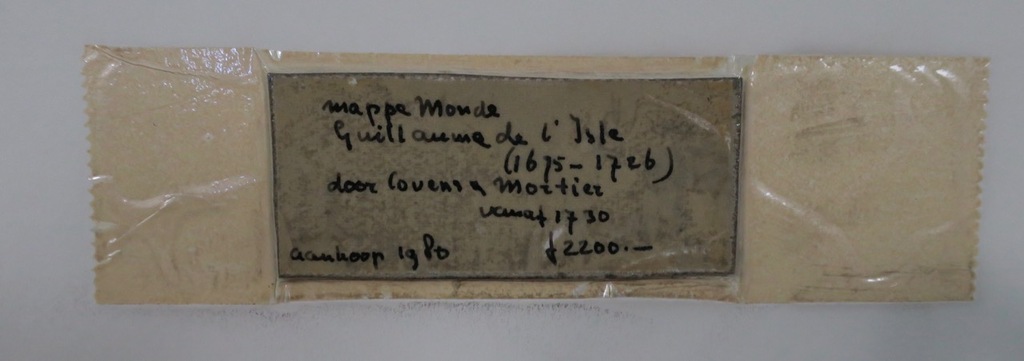 mappe Monde
Guillaume de l'Isle
(1675-1726)
door Covens & Mortier
vanaf 1730
aankoop 1980 f2200.—